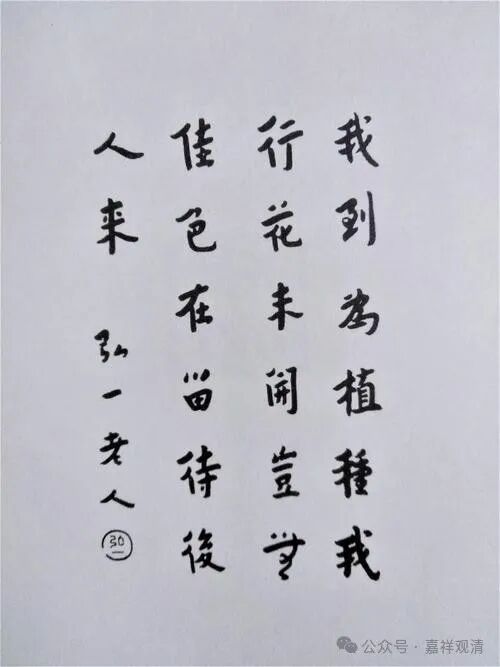 我到為植種我
行花未開豈無
佳色在留待後
人来 弘一老人
弘一
公众号·嘉祥观清